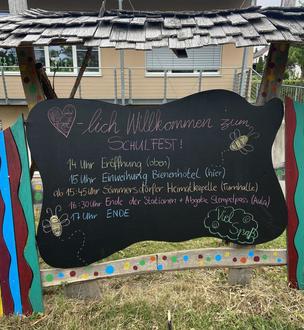 -lich Willkommen zum
SCHULFEST!
14 Uhr Eröffnung (oben)
15 Uhr Einweihung Bienenhotel (hier)
ab 15:45 Uhr Sommersdorfer Heimatkapelle (Turnhalle)
16:30 Uhr Ende der Stationen + Abgabe Stempelpass (Aula)
17 Uhr ENDE
Viel
Spaß